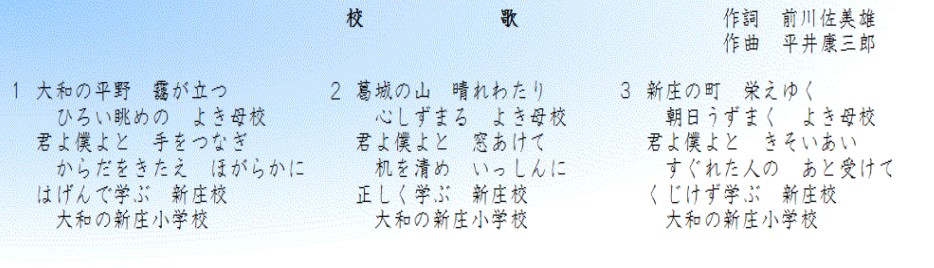 校歌
作詞 前川佐美雄
作曲 平井康三郎
1 大和の平野 靄が立つ
ひろい眺めの よき母校
君よ僕よと 手をつなぎ
からだをきたえ ほがらかに
はげんで学ぶ 新庄校
大和の新庄小学校
2 葛城の山 晴れわたり
心しずまる よき母校
君よ僕よと 窓あけて
机を清め いっしんに
正しく学ぶ 新庄校
大和の新庄小学校
3 新庄の町 栄えゆく
朝日うずまく よき母校
君よ僕よと きそいあい
すぐれた人の あと受けて
くじけず学ぶ 新庄校
大和の新庄小学校